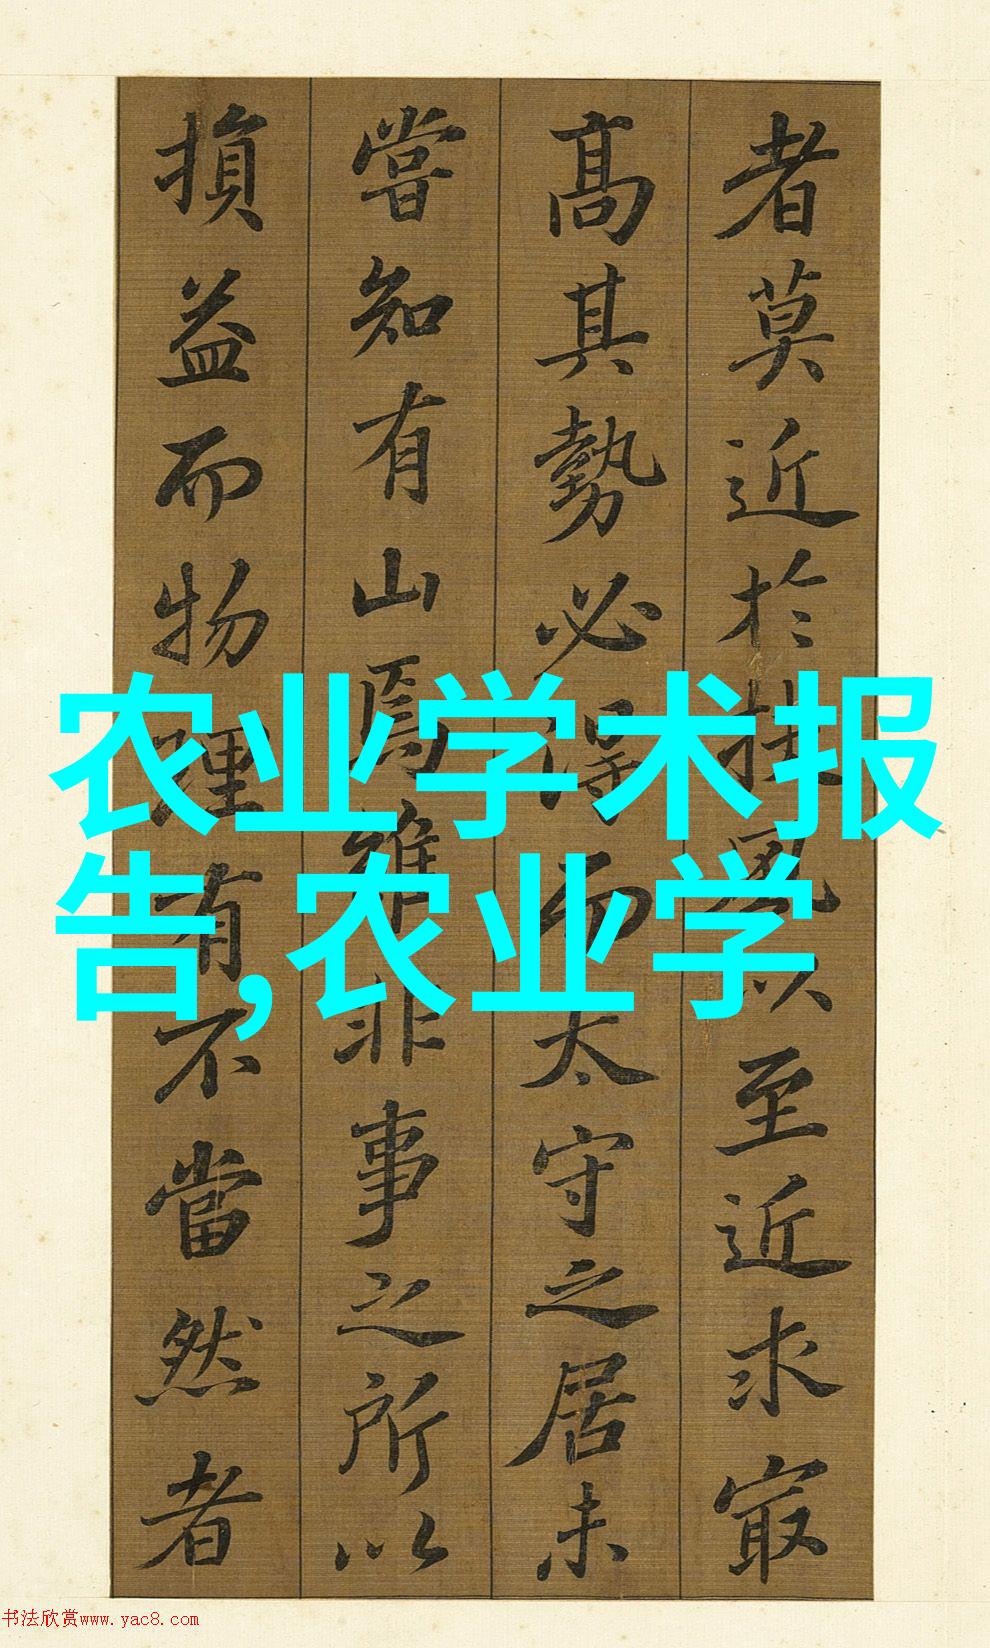 者莫近於扶風以至近求㝡
高其勢必得而太守之居未
嘗知有山焉雖非事之所以
損益而物理有不當然者
农业学术报
告,农业学
书法欣赏www.yac8.com